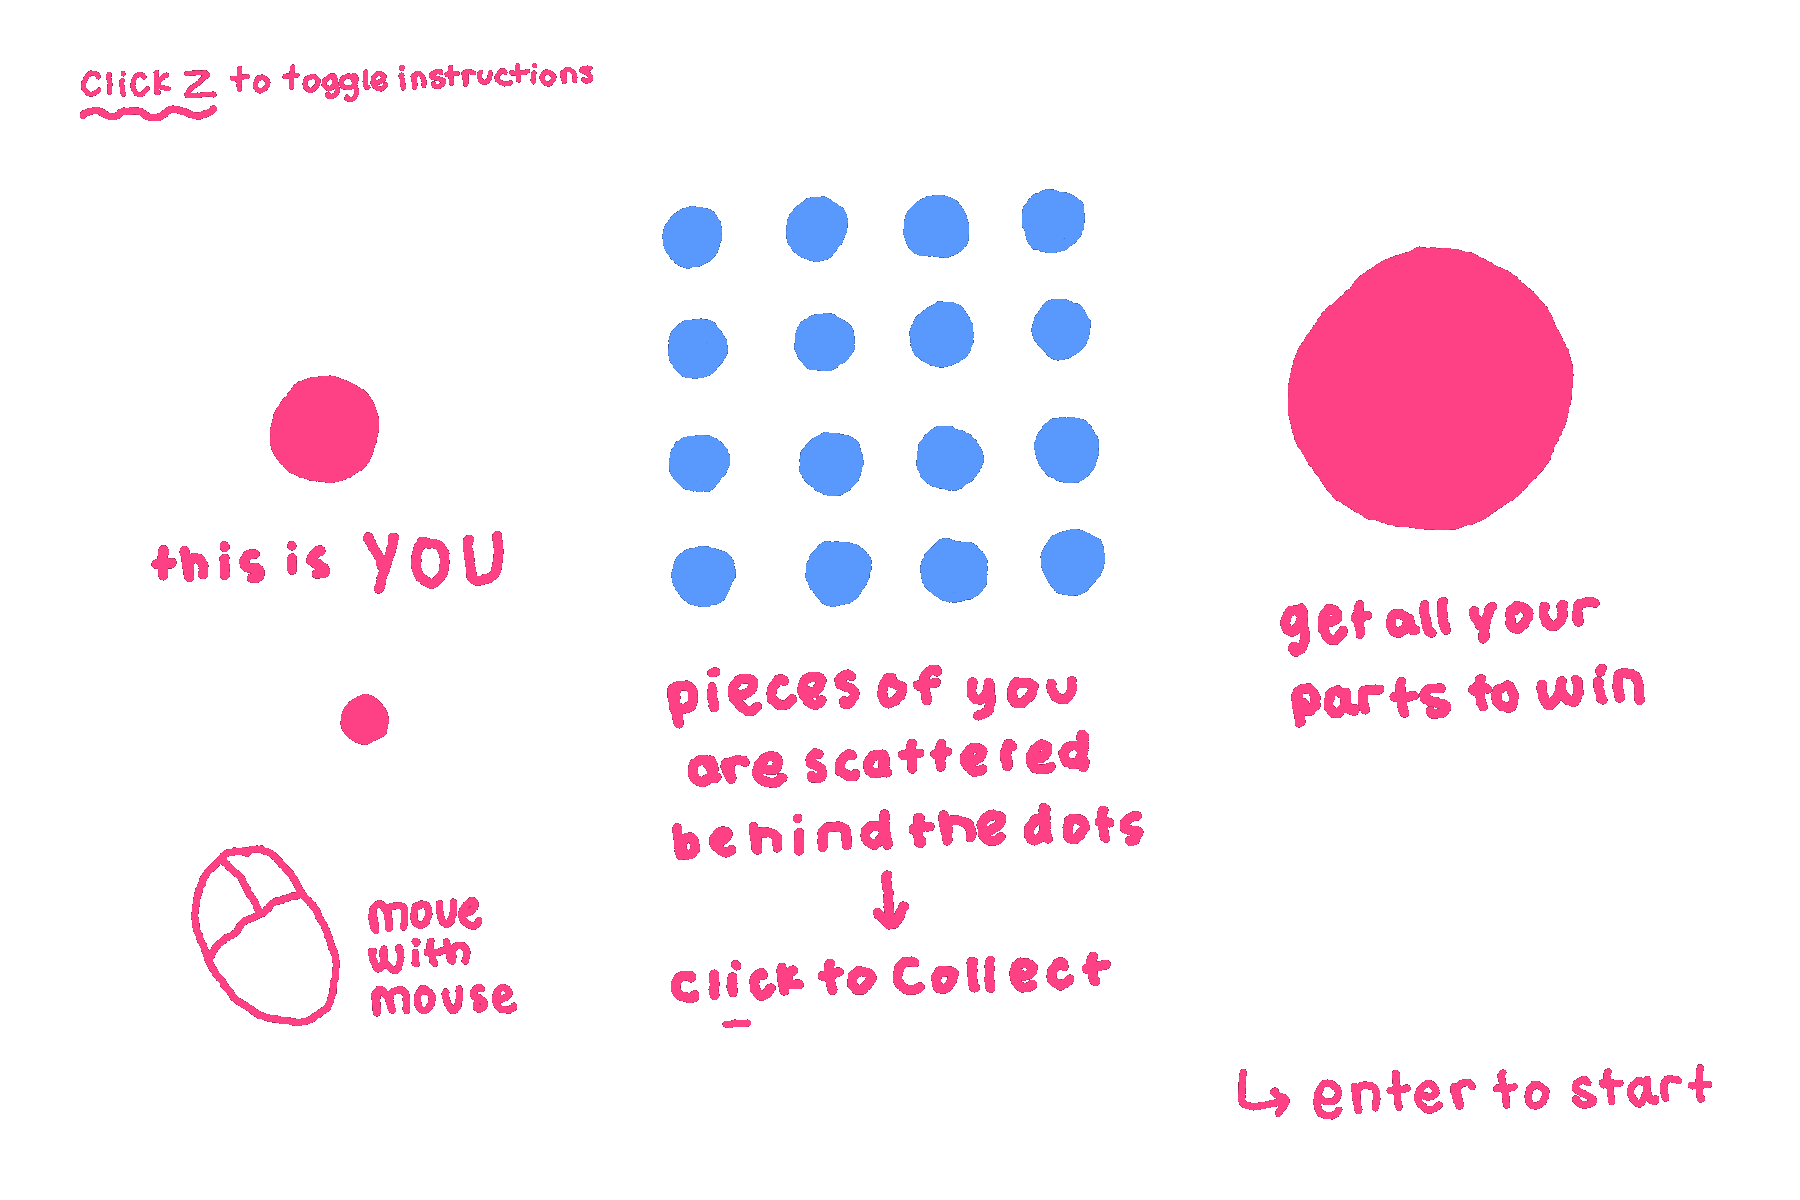 Click Z to toggle instructions
this is YOU
move
with
mouse
pieces of you
are scattered
behind the dots
click to Collect
get all your
parts to win
enter to start